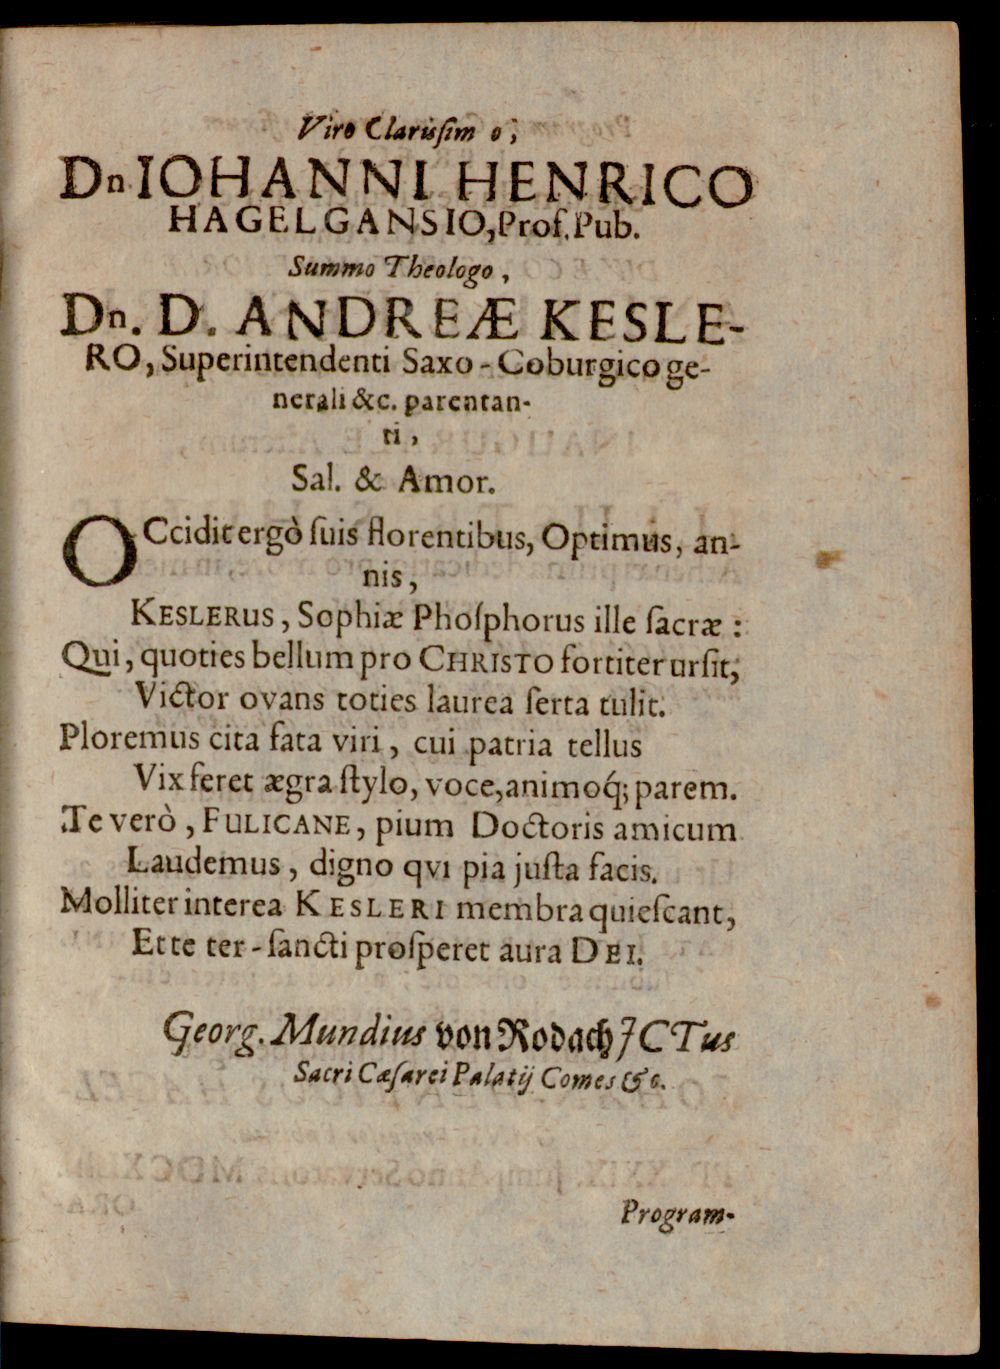 Viro Clarissim o,
Dn IOHANNI HENRICO
HAGELGANSIO, Prof. Pub.
Summo Theologo,
Dn. D. ANDREÆ KESLE-
RO, Superintendenti Saxo-Coburgico ge-
nerali &c. parentan-
ti,
Sal. & Amor.
OCcidit ergò ſuis florentibus, Optimus, an-
nis,
KESLERUS, Sophiæ Phoſphorus ille ſacræ:
Qui, quoties bellum pro CHRISTO fortiter urſit,
Victor ovans toties laurea ſerta tulit.
Ploremus cita fata viri, cui patria tellus
Vix feret ægra ſtylo, voce, animoq́; parem.
Te verò, FULICANE, pium Doctoris amicum
Laudemus, digno qvi pia juſta facis.
Molliter interea KESLERI membra quieſcant,
Et te ter-ſancti proſperet aura DEI.
Georg. Mundius von Rodach JCTus
Sacri Cæſarei Palatij Comes &c.
Program-